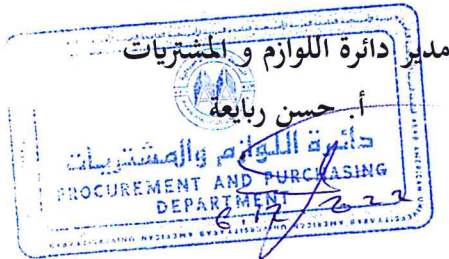 مدير دائرة اللوازم و المشتريات
أ. حسن ربايعة
دائرة اللوازم والمشتريات
PROCUREMENT AND PURCHASING
DEPARTMENT
6 12 2022